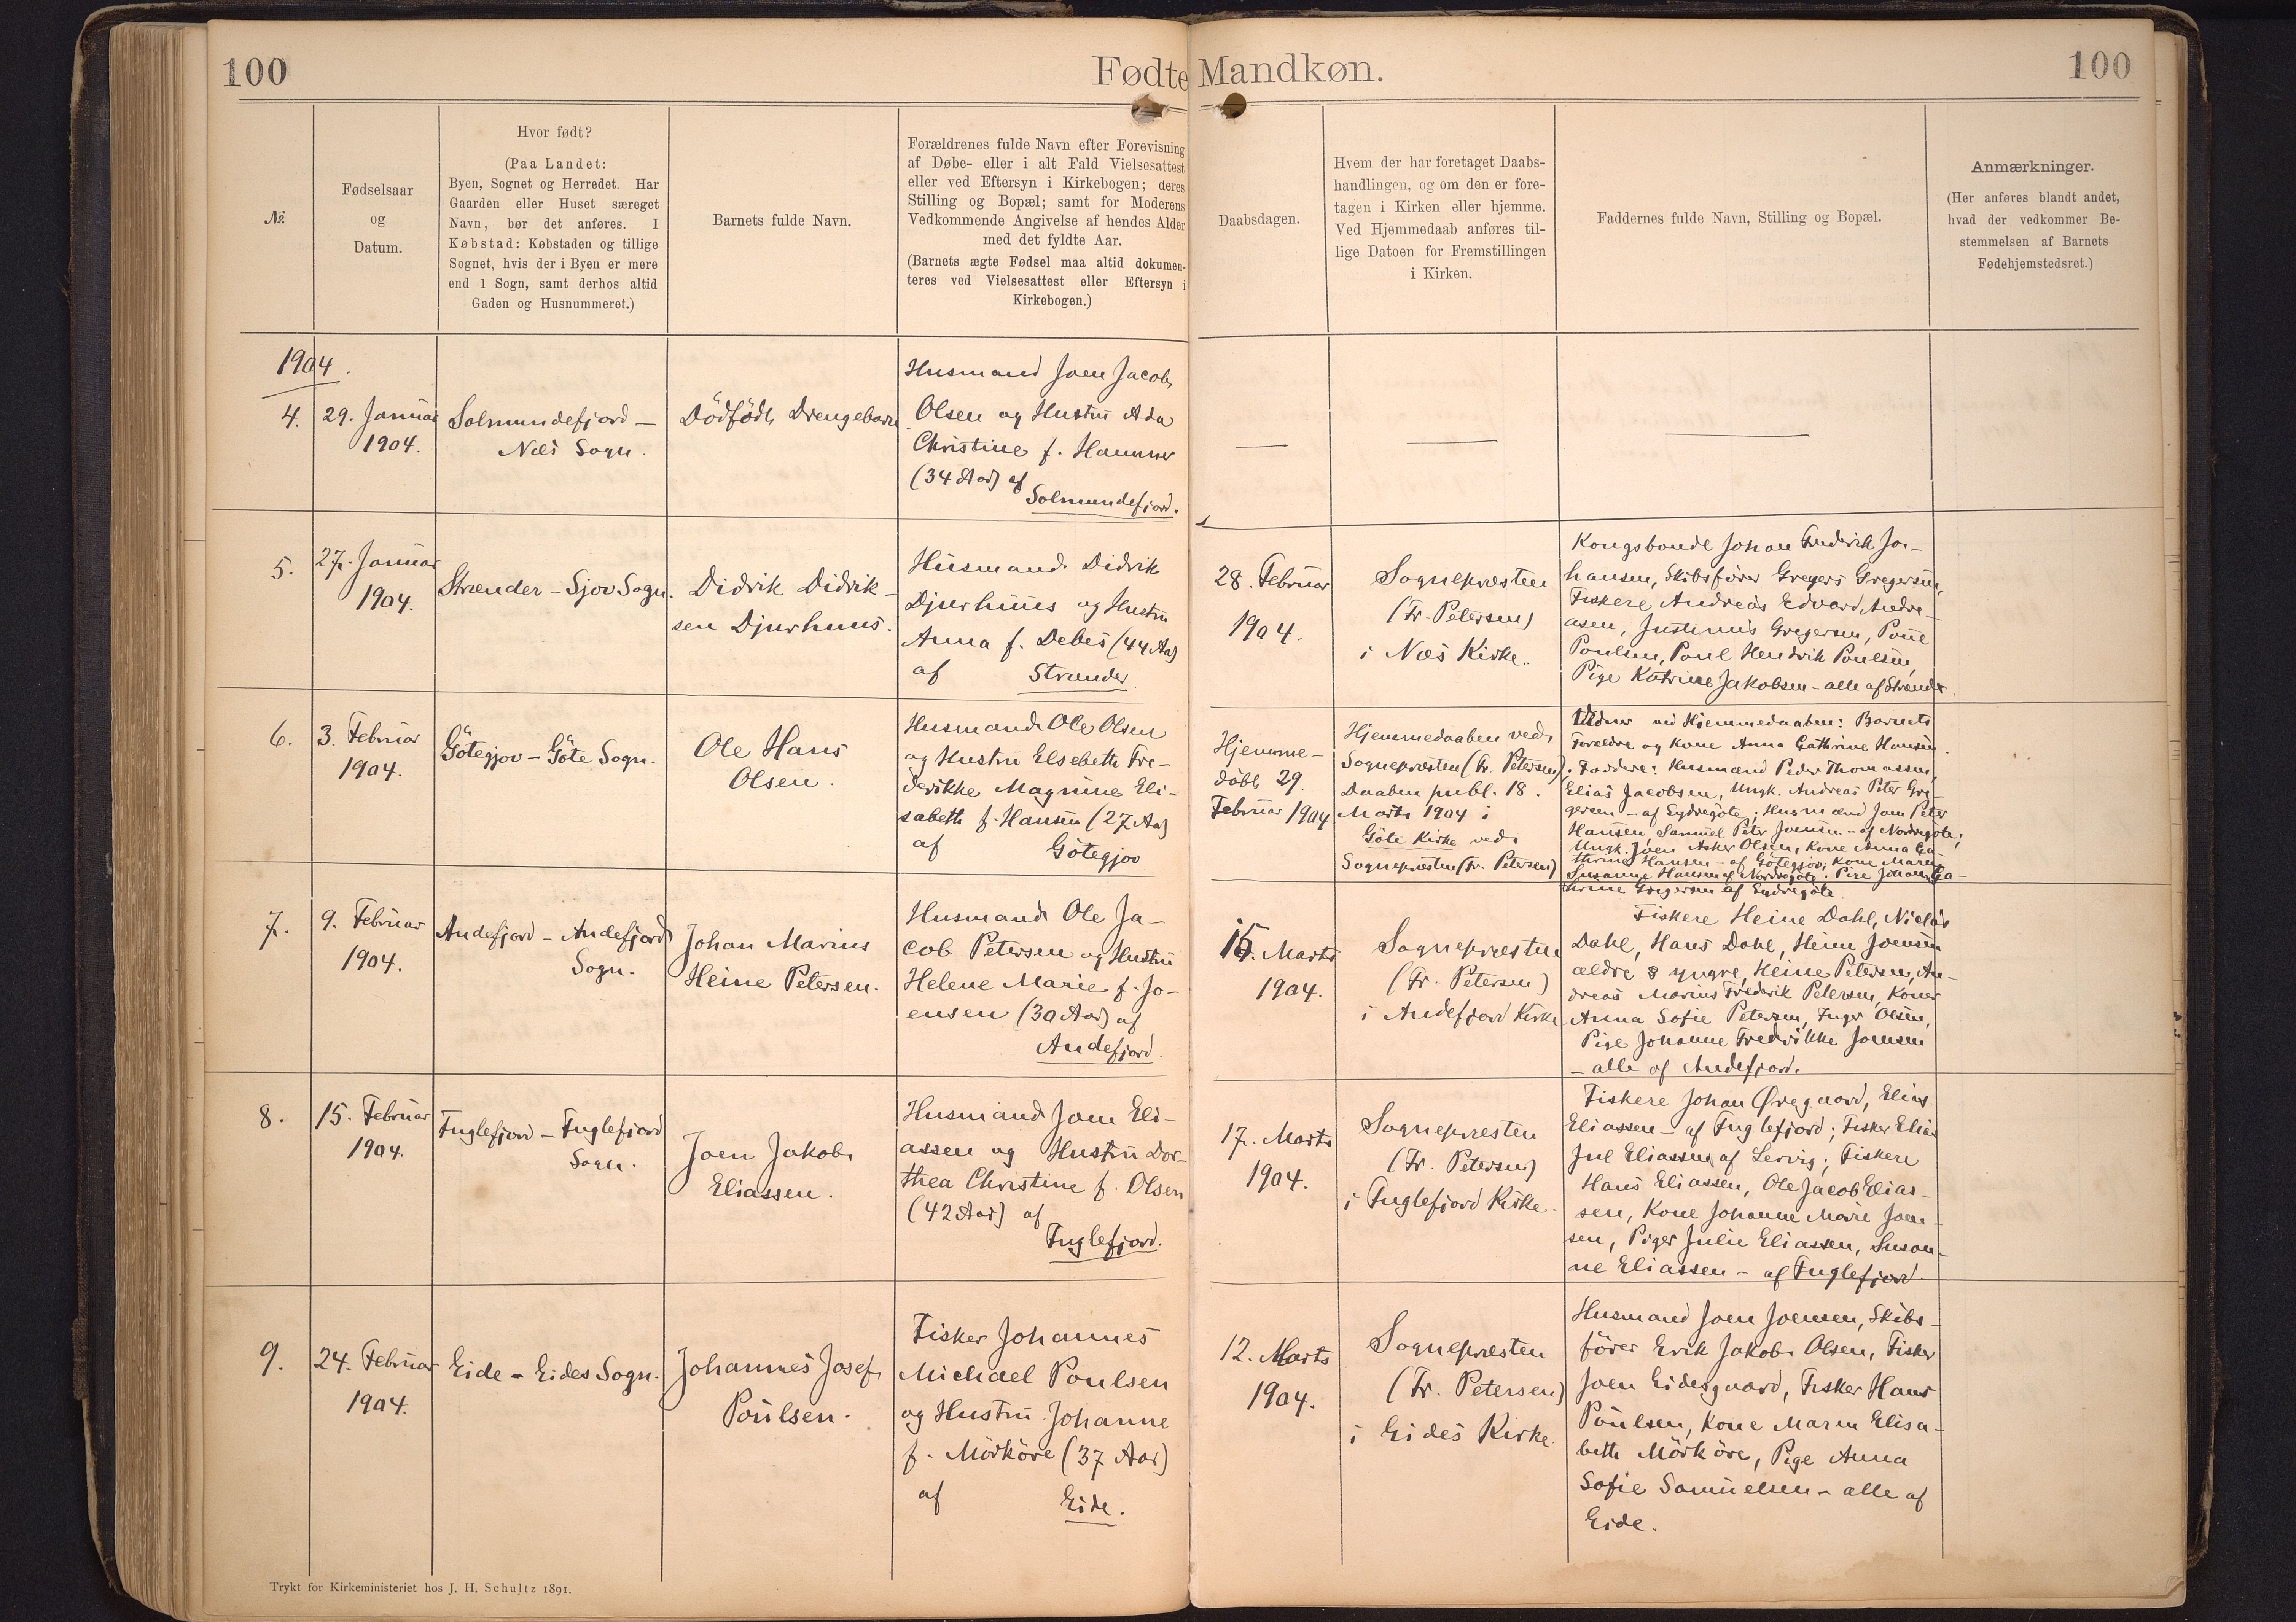 100
Fødte Mandkøn.
100
№
Fødselsaar
og
Datum.
Hvor født?
(Paa Landet:
Byen, Sognet og Herredet. Har
Gaarden eller Huset særeget
Navn, bør det anføres. I
Købstad: Købstaden og tillige
Sognet, hvis der i Byen er mere
end 1 Sogn, samt derhos altid
Gaden og Husnummeret.)
Barnets fulde Navn.
Forældrenes fulde Navn efter Forevisning
af Døbe- eller i alt Fald Vielsesattest
eller ved Eftersyn i Kirkebogen; deres
Stilling og Bopæl; samt for Moderens
Vedkommende Angivelse af hendes Alder
med det fyldte Aar.
(Barnets ægte Fødsel maa altid dokumen-
teres ved Vielsesattest eller Eftersyn i
Kirkebogen.)
Daabsdagen.
Hvem der har foretaget Daabs-
handlingen, og om den er fore-
tagen i Kirken eller hjemme.
Ved Hjemmedaab anføres til-
lige Datoen for Fremstillingen
i Kirken.
Faddernes fulde Navn, Stilling og Bopæl.
Anmærkninger.
(Her anføres blandt andet,
hvad der vedkommer Be-
stemmelsen af Barnets
Fødehjemstedsret.)
1904.
4.
29. Januar
1904.
Solmundefjord –
Næs Sogn.
Dödfödt Drengebarn
Husmand Joen Jacob
Olsen og Hustru Ada
Christine f. Hammer
(34 Aar) af
Solmundefjord.
5.
27. Januar
1904.
Strænder – Sjov Sogn.
Didrik Didrik-
sen Djurhuus.
Husmand Didrik
Djurhuus og Hustru
Anna f. Debes (44 Aa)
af Strænder
28. Februar
1904.
Sognepræsten
(Fr. Petersen)
i Næs Kirke.
Kongsbonde Johan Frederik Jo-
hansen, Skibsfører Gregers Gregersen,
Fiskere Andreas Edvard Andre-
asen, Justinus Gregersen, Poul
Poulsen, Poul Hendrik Poulsen,
Pige Katrine Jakobsen – alle af Strænder.
6.
3. Februar
1904.
Götegjov – Göte Sogn.
Ole Hans
Olsen.
Husmand Ole Olsen
og Hustru Elsebeth Fre-
derikke Magnine Eli-
sabeth f. Hansen (27 Aa)
af Götegjov
Hjemme-
döbt 29.
Februar 1904
Hjemmedaaben ved
Sognepræsten (Fr. Petersen);
Daaben publ. 18.
Marts 1904 i
Göte Kirke ved
Sognepræsten (Fr. Petersen)
Vidner ved Hjemmedaaben: Barnets
Forældre og Kone Anna Cathrine Hansen.
Faddere: Husmænd Peder Thomassen,
Elias Jacobsen, Ungk. Andreas Peter Gre-
gersen – af Sydregöte; Husmænd Joen Peter
Hansen, Samuel Peter Joensen – af Nordregöte;
Ungk. Joen Asker Olsen, Kone Anna Ca-
thrine Hansen – af Götegjov; Kone Maren
Susanne Hansen af Nordregöte. Pige Johanne Ca-
thrine Gregersen af Sydregöte
7.
9. Februar
1904.
Andefjord – Andefjord
Sogn.
Johan Marius
Heine Petersen.
Husmand Ole Ja-
cob Petersen og Hustru
Helene Marie f. Jo-
ensen (30 Aar) af
Andefjord.
15. Marts
1904.
Sognepræsten
(Fr. Petersen)
i Andefjord Kirke
Fiskere Heine Dahl, Nielas
Dahl, Hans Dahl, Heine Joensen
ældre & yngre, Heine Petersen, An-
dreas Marius Frederik Petersen, Koner
Anna Sofie Petersen, Inger Olsen,
Pige Johanne Fredrikke Joensen
– alle af Andefjord.
8.
15. Februar
1904.
Fuglefjord – Fuglefjord
Sogn.
Joen Jakob
Eliassen.
Husmand Joen Eli-
assen og Hustru Dor-
thea Christine f. Olsen
(42 Aar) af
Fuglefjord.
17. Marts
1904.
Sognepræsten
(Fr. Petersen)
i Fuglefjord Kirke.
Fiskere Johan Øregaard, Elias
Eliassen – af Fuglefjord; Fisker Elias
Jul Eliassen af Lervig; Fiskere
Hans Eliassen, Ole Jacob Elias-
sen, Kone Johanne Marie Joen-
sen, Piger Julie Eliassen, Susan-
ne Eliassen – af Fuglefjord.
9.
24. Februar
1904.
Eide – Eides Sogn.
Johannes Josef
Poulsen.
Fisker Johannes
Michael Poulsen
og Hustru Johanne
f. Mörköre (37 Aar)
af Eide.
12. Marts
1904.
Sognepræsten
(Fr. Petersen)
i Eides Kirke.
Husmand Joen Joensen, Skibs-
förer Erik Jakob Olsen, Fisker
Joen Eidesgaard, Fisker Hans
Poulsen, Kone Maren Elisa-
beth Mörköre, Pige Anna
Sofie Samuelsen – alle af
Eide.
Trykt for Kirkeministeriet hos J. H. Schultz 1891.